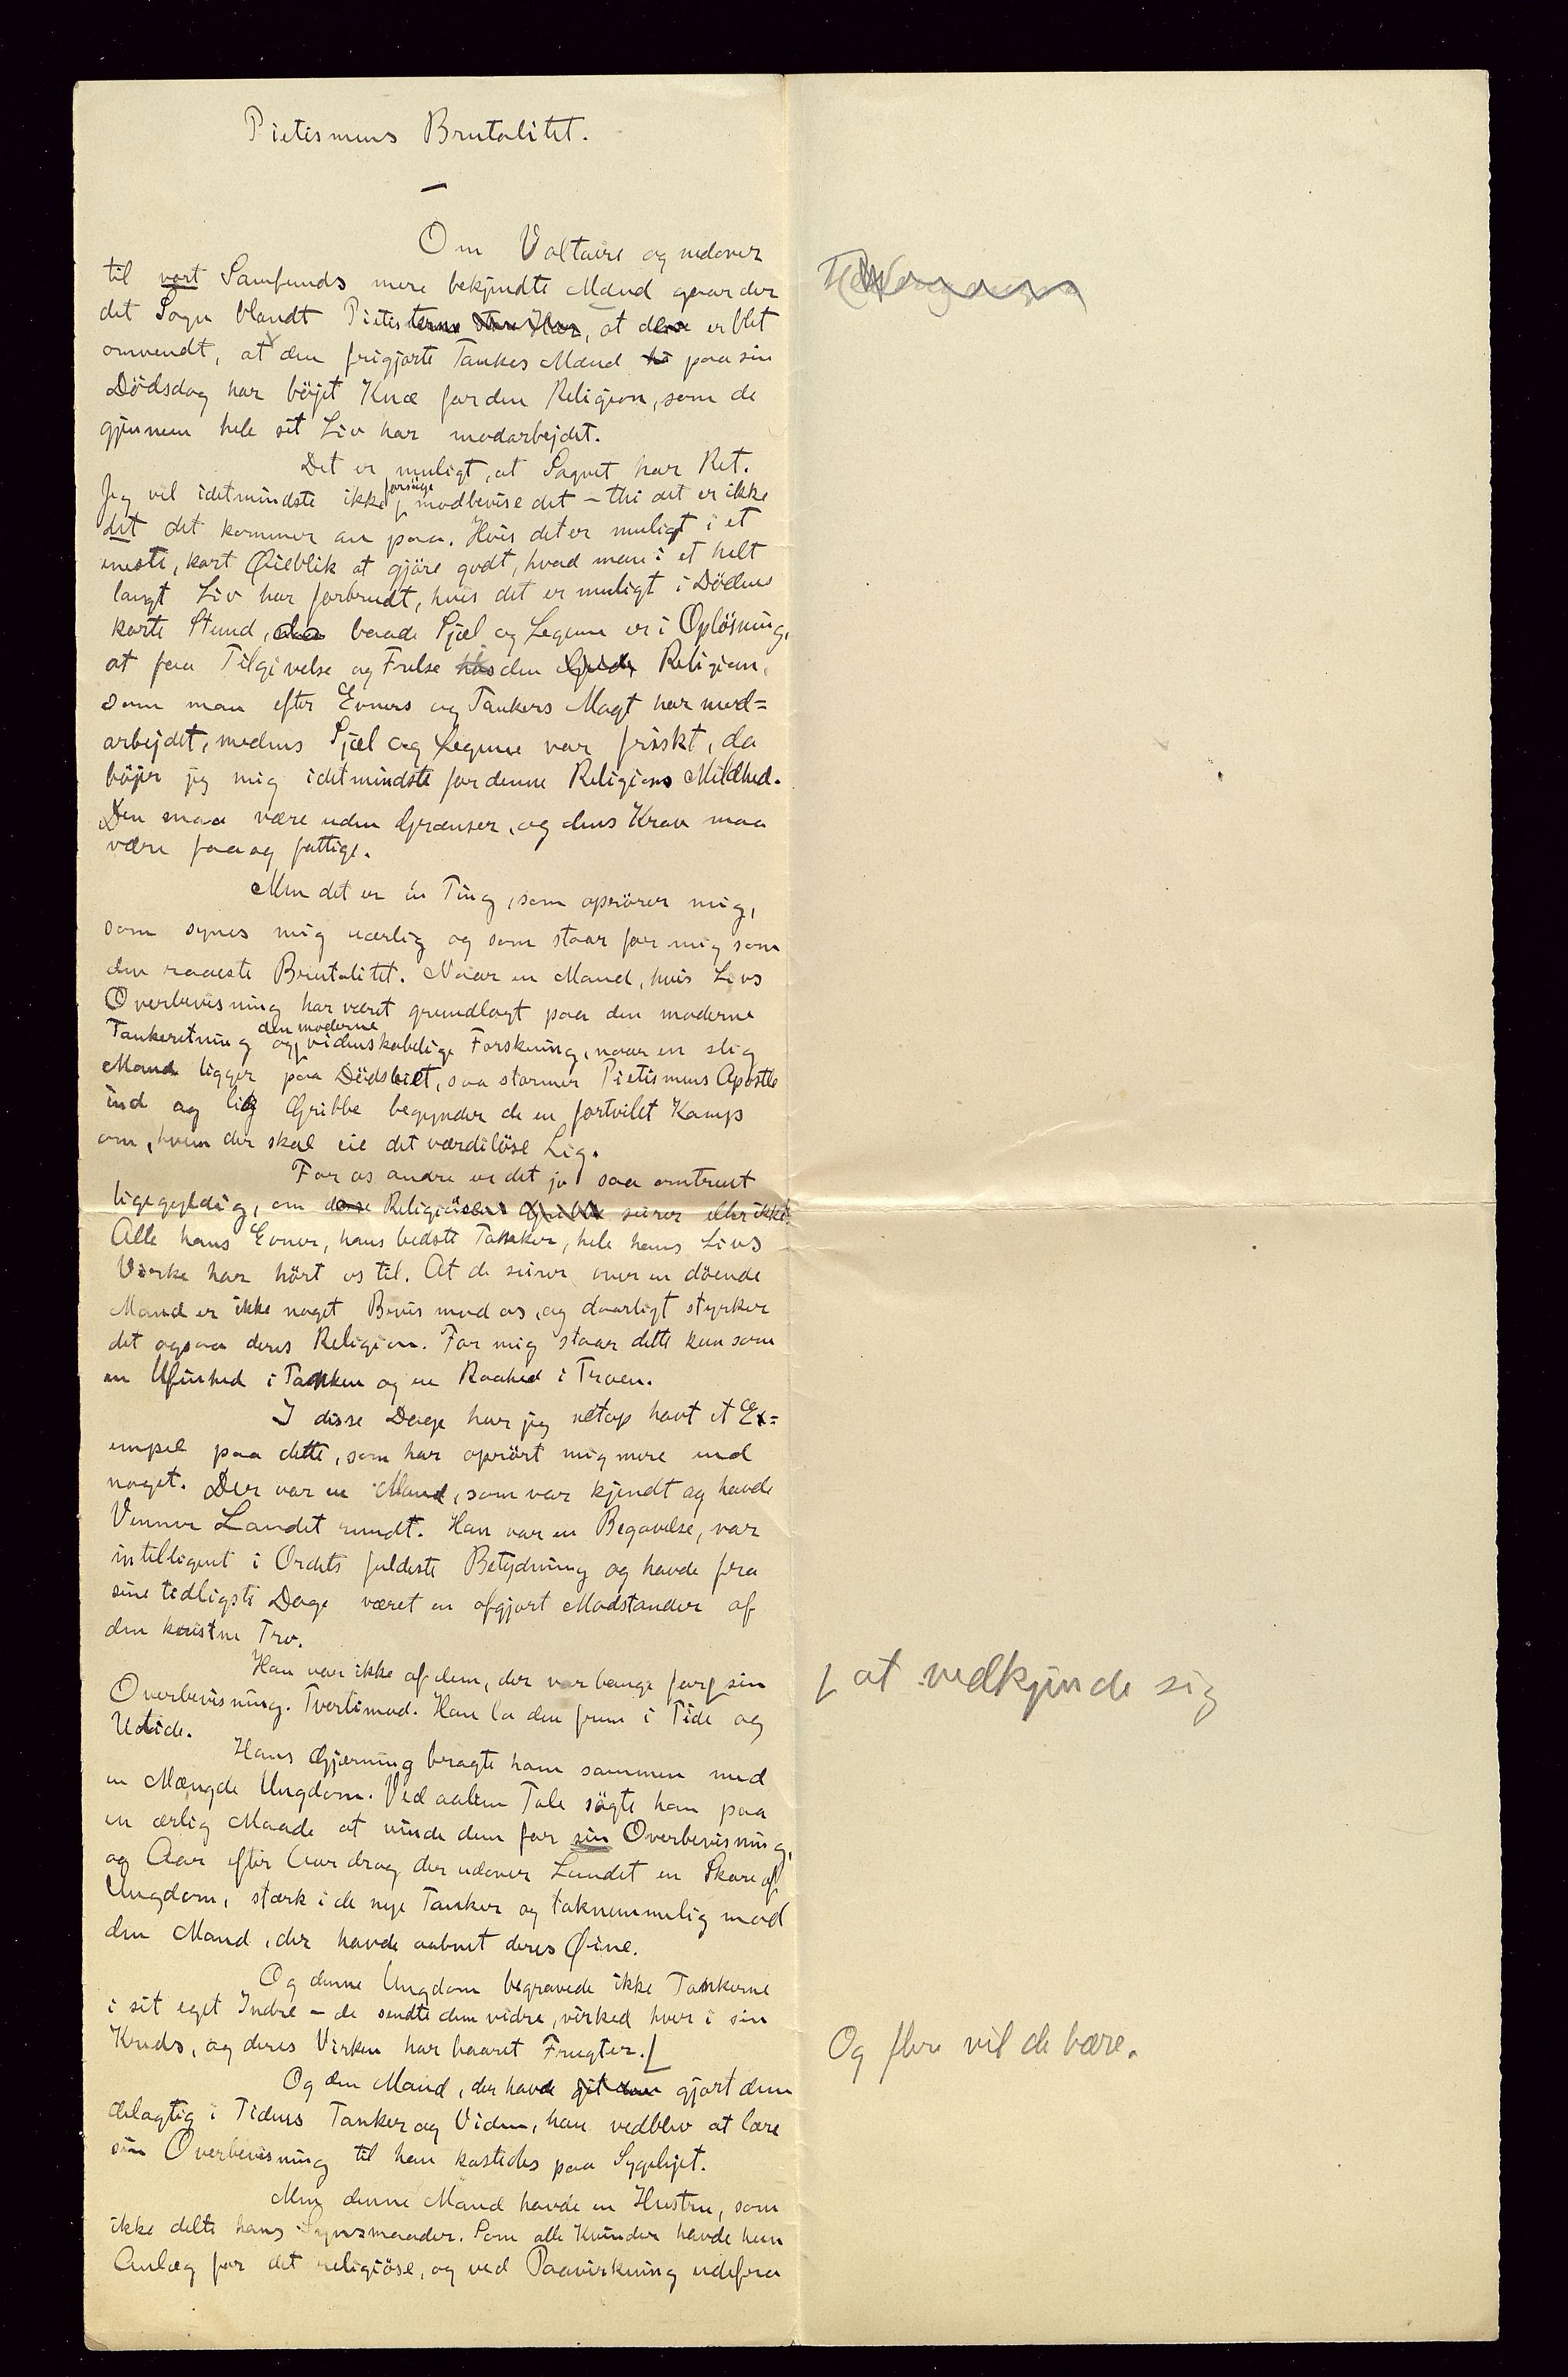 Pietismens Brutalitet.
Om Voltaire og nedover
til vort Samfunds mere bekjendte Mænd gaar der
det Sagn blandt Pietisterne, at de er blet
omvendt, at den frigjorte Tankes Mænd paa sin
Dödsdag har böjet Knæ for den Religion, som de
gjennem hele sit Liv har modarbejdet.
Det er muligt, at Sagnet har Ret.
Jeg vil idetmindste ikke forsöge modbevise det – thi det er ikke
det det kommer an paa. Hvis det er muligt i et
eneste, kort Øieblik at gjöre godt, hvad man i et helt
langt Liv har forbrudt, hvis det er muligt i Dödens
korte Stund, da baade Sjæl og Legeme er i Oplösning,
at faa Tilgivelse og Frelse hos den Religion,
som man efter Evners og Tankers Magt har mod=
arbejdet, medens Sjæl og Legeme var friskt, da
böjer jeg mig idetmindste for denne Religions Mildhed.
Den maa være uden Grænser, og dens Krav maa
være faa og fattige.
Men det er én Ting, som oprörer mig,
som synes mig uærlig og som staar for mig som
den raaeste Brutalitet. Naar en Mand, hvis Livs
Overbevisning har været grundlagt paa den moderne
Tankeretning og den moderne videnskabelige Forskning, naar en slig
Mand ligger paa Dödsleiet, saa stormer Pietismens Apostle
ind og lig Gribbe begynder de en fortvilet Kamp
om, hvem der skal eie det værdilöse Lig.
For os andre er det jo saa omtrent
ligegyldig, om de Religiöse seirer eller ikke.
Alle hans Evner, hans bedste Tanker, hele hans Livs
Virke har hört os til. At de seirer over en döende
Mand er ikke noget Bevis mod os, og daarligt styrker
det ogsaa deres Religion. For mig staar dette kun som
en Ufinhed i Tanken og en Raahed i Troen.
I disse Dage har jeg netop havt et Ex=
empel paa dette, som har oprört mig mere end
noget. Der var en Mand, som var kjendt og havde
Venner Landet rundt. Han var en Begavelse, var
intelligent i Ordets fuldeste Betydning og havde fra
sine tidligste Dage været en afgjort Modstander af
den kristne Tro.
Han var ikke af dem, der var bange for ⌈ sin
Overbevisning. Tvertimod. Han la den frem i Tide og
Utide.
⌈ at vedkjende sig
Hans Gjerning bragte ham sammen med
en Mængde Ungdom. Ved aaben Tale sögte han paa
en ærlig Maade at vinde dem for sin Overbevisning,
og Aar efter Aar drog der udover Landet en Skare af
Ungdom, stærk i de nye Tanker og taknemmelig mod
den Mand, der havde aabnet deres Øine.
Og denne Ungdom begravede ikke Tankerne
i sit eget Indre – de sendte dem vidre, virked hver i sin
Kreds, og deres Virken har baaret Frugter. ⌈
Og flere vil de bære.
Og den Mand, der havde git dem gjort dem
delagtig i Tidens Tanker og Viden, han vedblev at lære
sin Overbevisning til han kastedes paa Sygelejet.
Men denne Mand havde en Hustru, som
ikke delte hans Synsmaader. Som alle Kvinder havde hun
Anlæg for det religiöse, og ved Paavirkning udefra